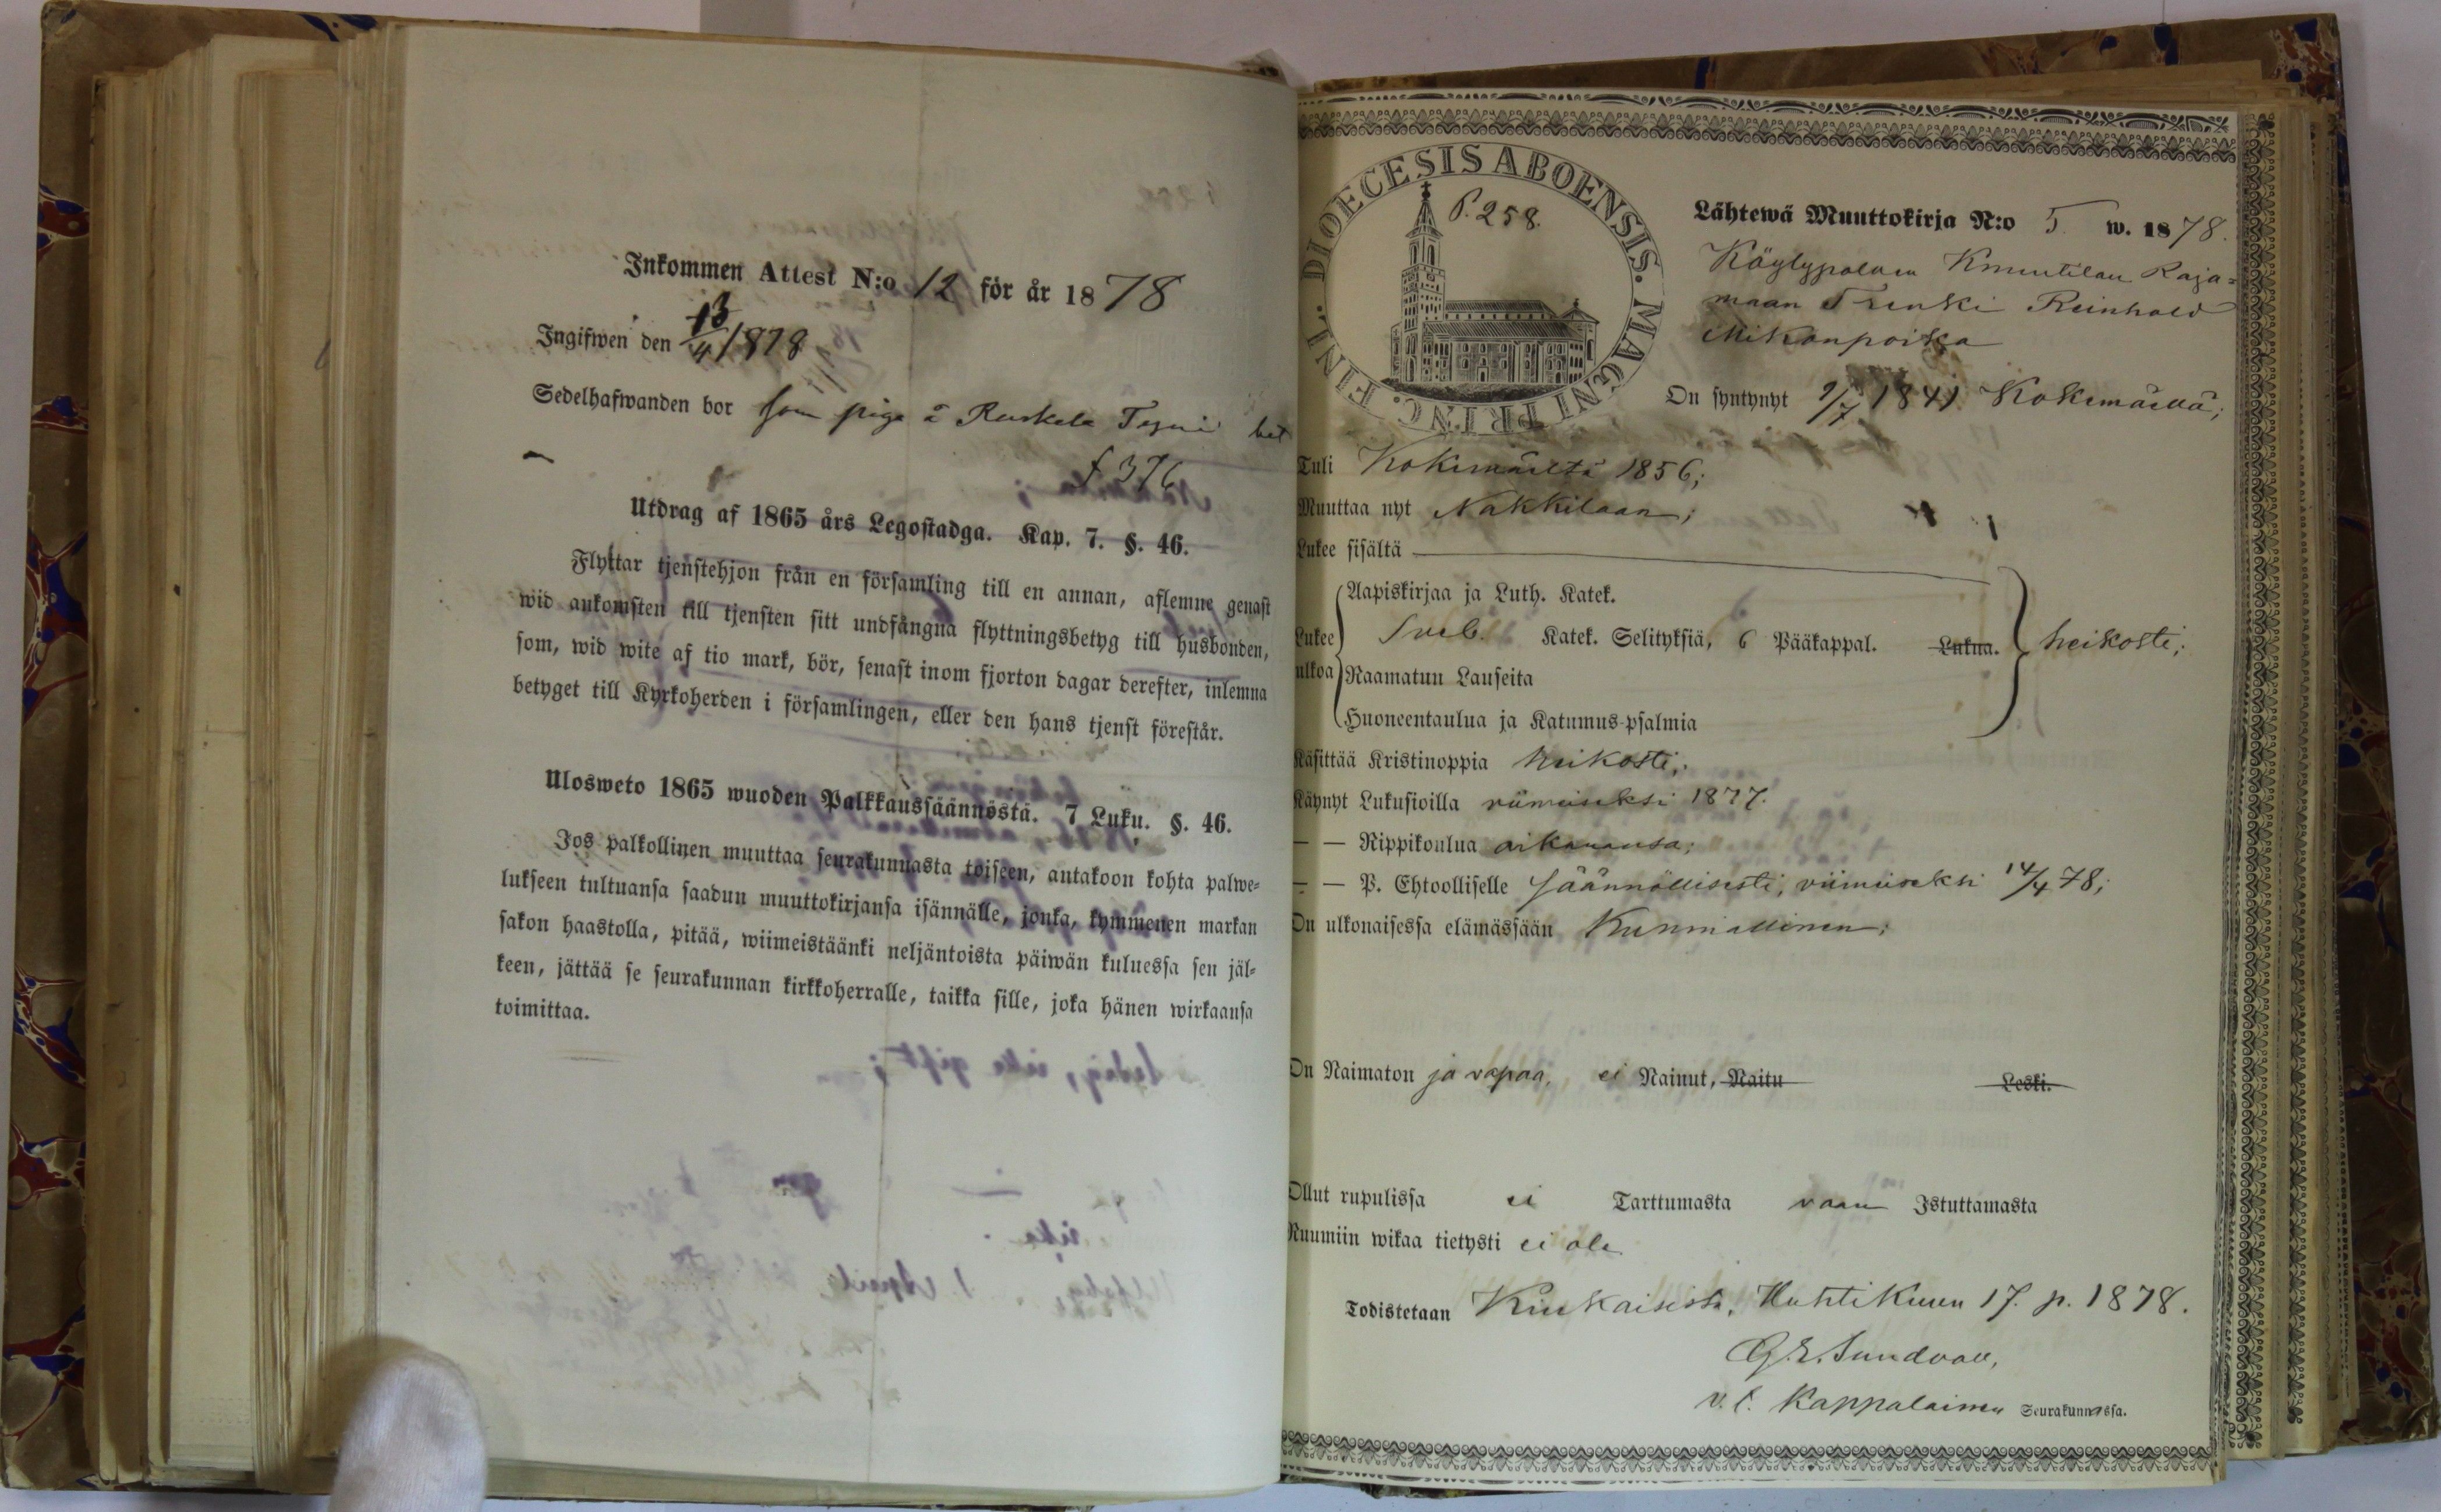 Inkommen Attest N:o 12 för år 1878
Ingifwen den 13/4 1878
Sedelhafwanden bor som piga å Ruskela Tyyni
f 376
Utdrag af 1865 års Legostadga. Kap. 7. §. 46.
Flyttar tjenstehjon från en församling till en annan, aflemne genast
wid ankomsten till tjensten sitt undfångna flyttningsbetyg till husbonden,
som, wid wite af tio mark, bör, senast inom fjorton dagar derefter, inlemna
betyget till Kyrkoherden i församlingen, eller den hans tjenst förestår.
Ulosweto 1865 wuoden Palkkaussäännöstä. 7 Luku. §. 46.
Jos palkollinen muuttaa seurakunnasta toiseen, antakoon kohta palwe-
lukseen tultuansa saadun muuttokirjansa isännälle, jonka, kymmenen markan
sakon haastolla, pitää, wiimeistäänki neljäntoista päiwän kuluessa sen jäl-
keen, jättää se seurakunnan kirkkoherralle, taikka sille, joka hänen wirkaansa
toimittaa.
DIOECESIS ABOENSIS. MAGNI PRINC. FINL.
P. 258.
Lähtewä Muuttokirja N:o 5 w. 1878.
Köylypolwen Knuutilan Raja-
maan Trenki Reinhold
Mikonpoika
On syntynyt 9/7 1841 Kokemäellä;
Tuli Kokemäeltä 1856;
Muuttaa nyt Nakkilaan;
Lukee sisältä
Aapiskirjaa ja Luth. Katek.
Lukee ulkoa Sveb. Katek. Selityksiä, 6 Pääkappal. Lukua. heikosti;
Raamatun Lauseita
Huoneentaulua ja Katumus-psalmia
Käsittää Kristinoppia heikosti;
Käynyt Lukusioilla viimeiseksi 1877.
— — Rippikoulua aikanansa;
— — P. Ehtoolliselle säännöllisesti, viimeiseksi 14/4 78;
On ulkonaisessa elämässään Kunniallinen;
On Naimaton ja vapaa, ei Nainut, Naitu Leski.
Ollut rupulissa ei Tarttumasta vaan Istuttamasta
Ruumiin wikaa tietysti ei ole
Todistetaan Kiukaisista, Huhtikuun 17. p. 1878.
G. E. Sundvall,
v. t. Kappalainen Seurakunnassa.